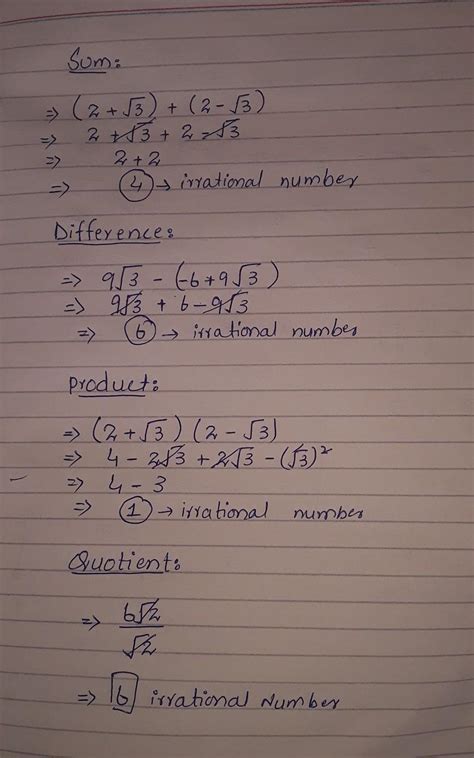 Sum:
⇒ (2 + √3) + (2 - √3)
⇒ 2 + √3 + 2 - √3
⇒ 2 + 2
⇒ 4 → irrational number
Difference:
⇒ 9√3 - (-6 + 9√3)
⇒ 9√3 + 6 - 9√3
⇒ 6 → irrational number
Product:
⇒ (2 + √3) (2 - √3)
⇒ 4 - 2√3 + 2√3 - (√3)²
⇒ 4 - 3
⇒ 1 → irrational number
Quotient:
⇒ 6√2
√2
⇒ 6 irrational Number